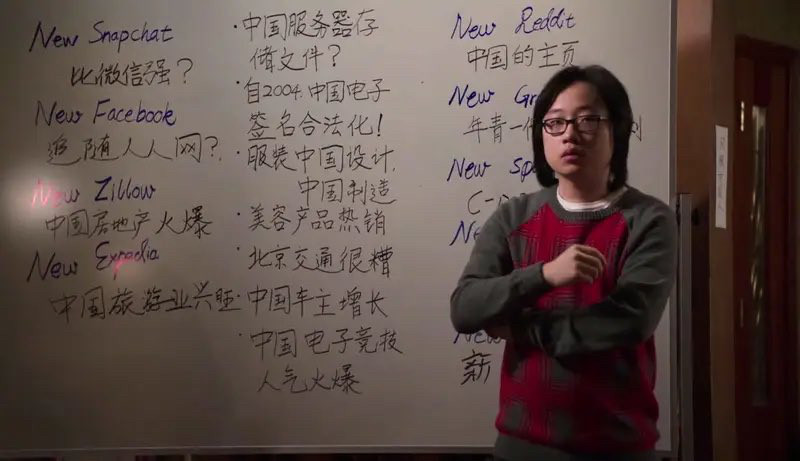 New Snapchat
比微信强？
New Facebook
追随人人网？
New Zillow
中国房地产火爆
New Expedia
中国旅游业兴旺
·中国服务器存
储文件？
·自2004,中国电子
签名合法化！
·服装中国设计,
中国制造
·美容产品热销
·北京交通很糟
·中国车主增长
·中国电子竞技
人气火爆
New Reddit
中国的主页
New
年青一
New
New
新